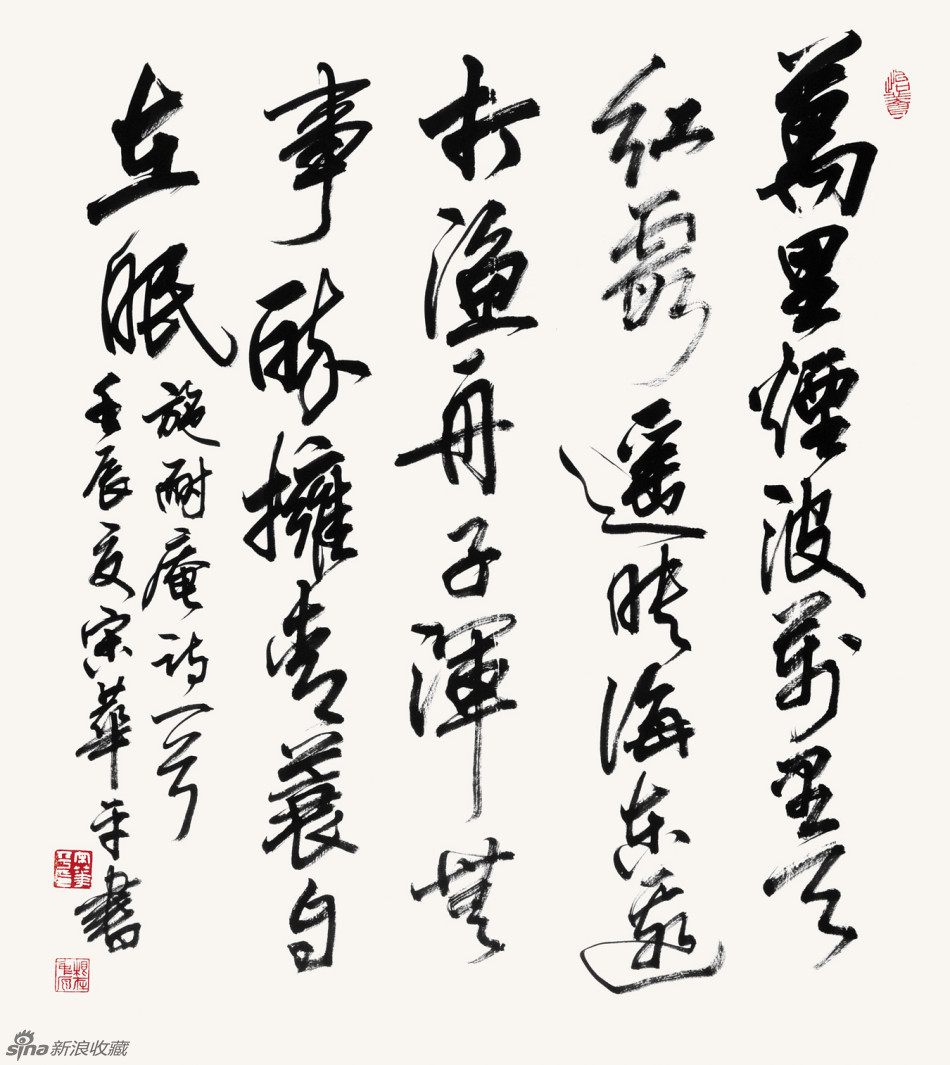 萬里煙波萬里天
紅霞遥映海东邊
打漁舟子渾無
事醉擁青蓑自
在眠
施耐庵詩一首
壬辰夏宋華平書
sina新浪收藏